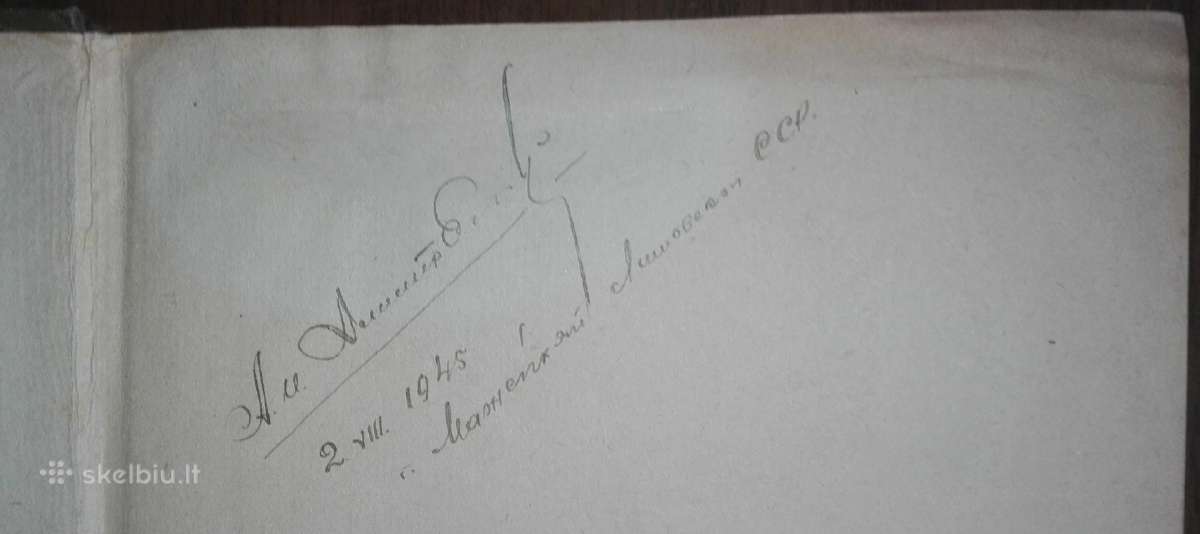 А. И. Дмитр
2. VIII. 1945 г.
г. Мажейкяй Литовской ССР.
skelbiu.lt